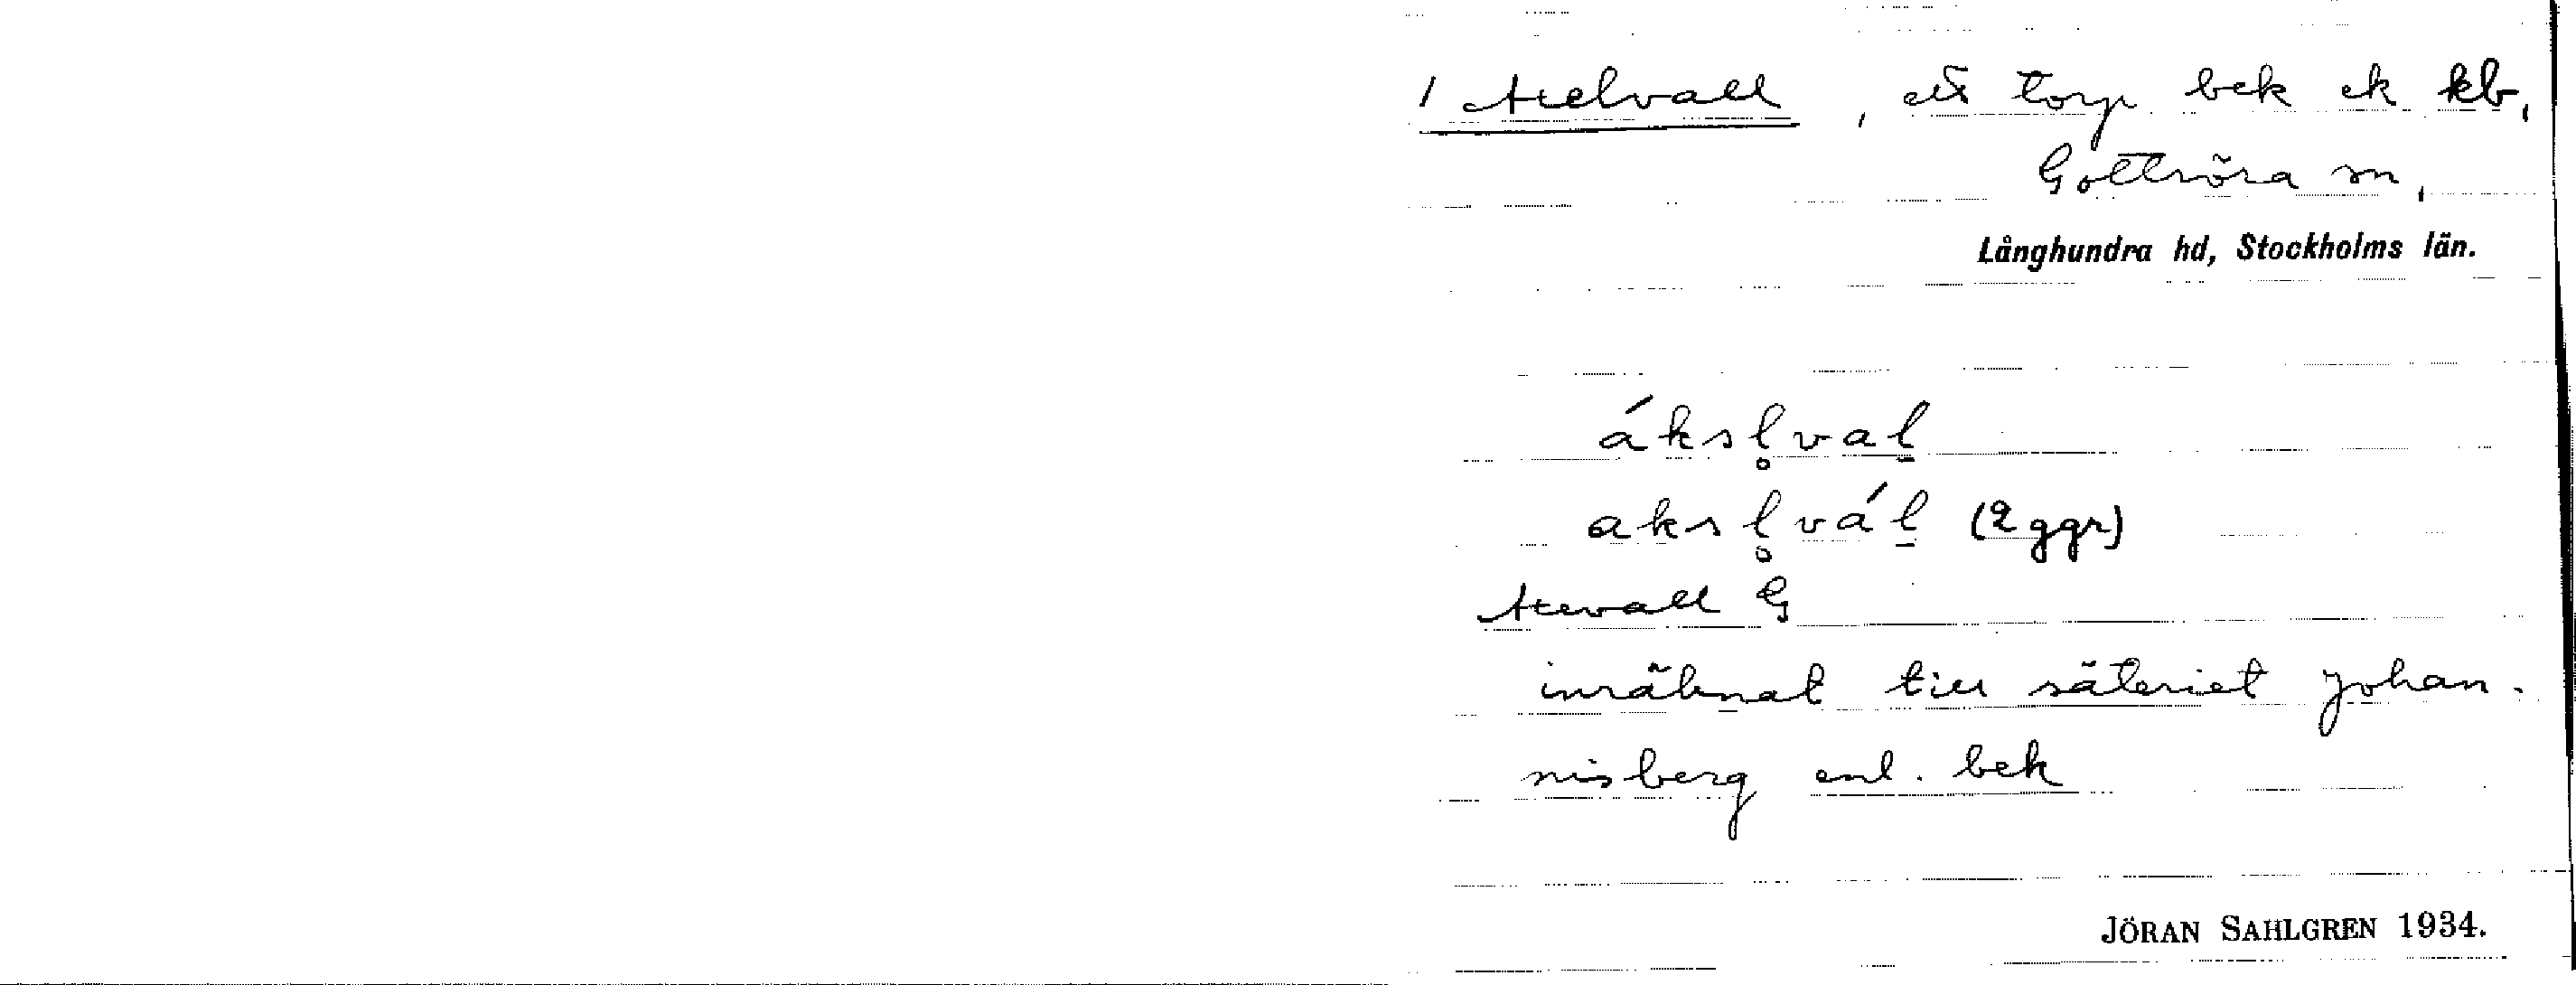 1 Axelvall, ett torp bek ek kb,
Gottröra sn,
Långhundra hd, Stockholms län.
áksl̥val̠
aksl̥vál̠ (2 ggr)
Axevall G
inräknat till säteriet Johan-
nisberg enl. bek
JÖRAN SAHLGREN 1934.